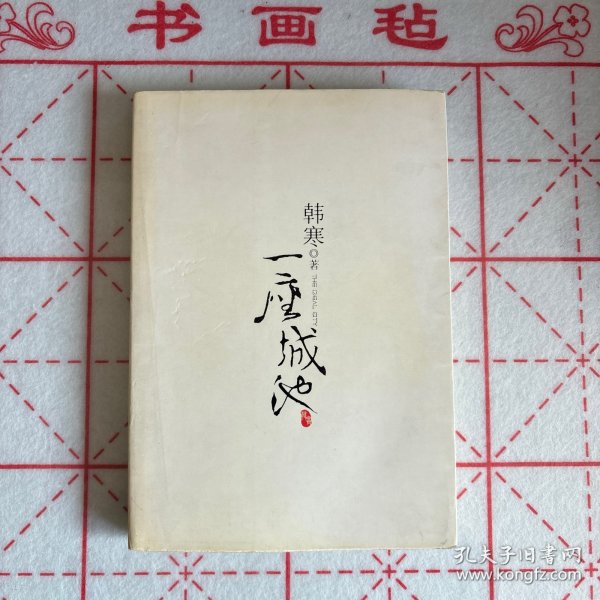 书画毡
韩寒◎著
一座城池
THE IDEAL CITY
孔夫子旧书网
www.kongfz.com